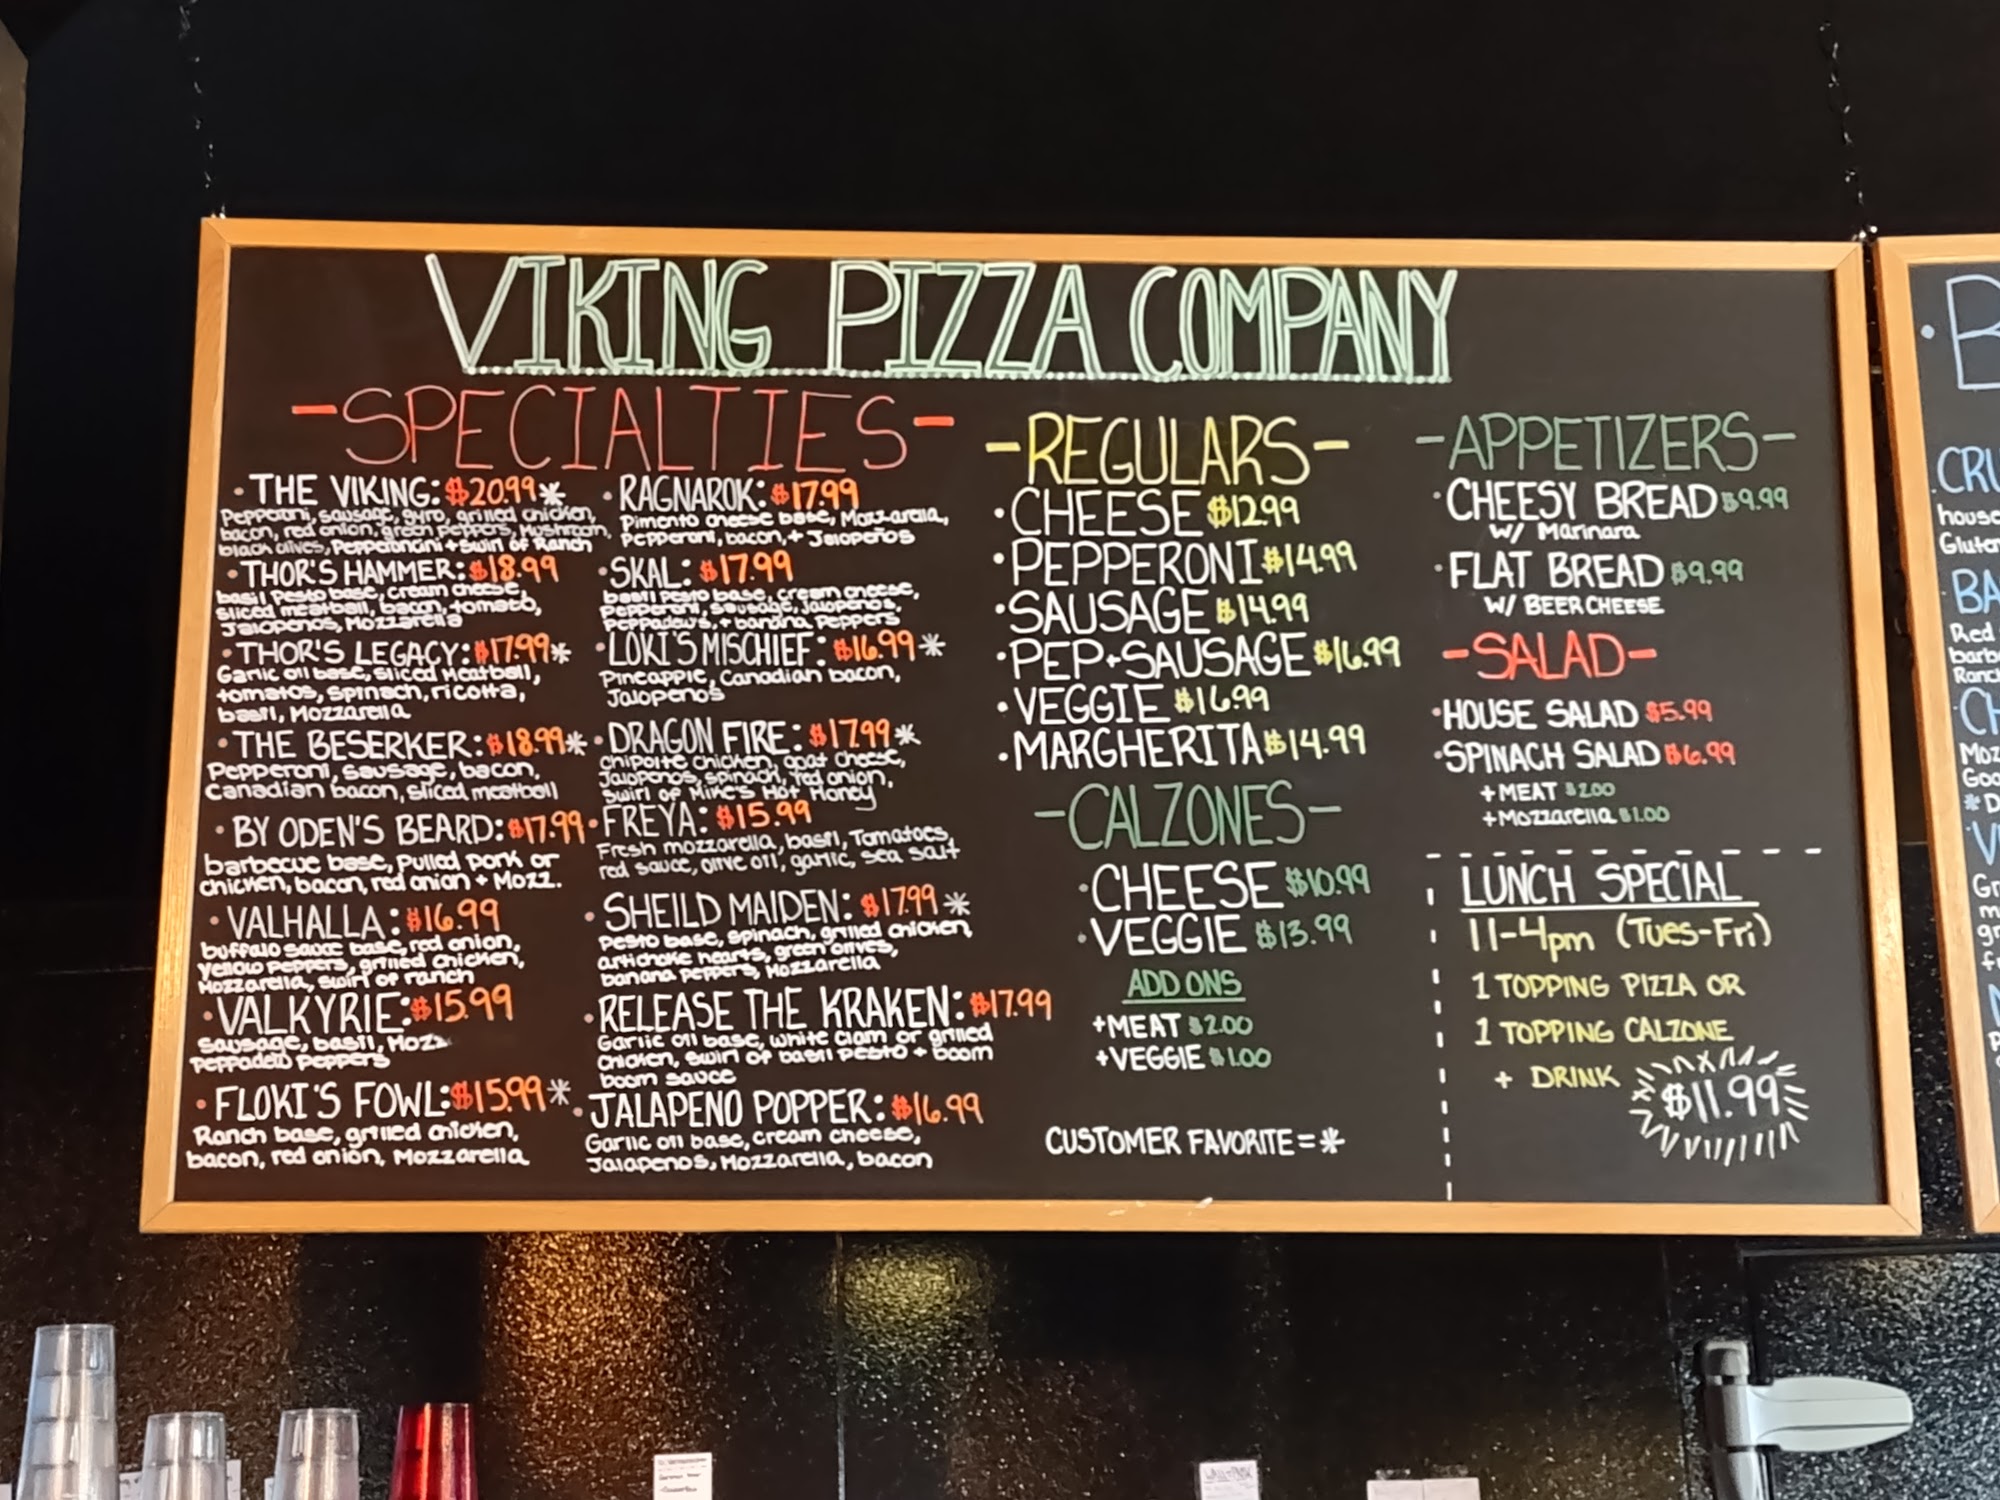 VIKING PIZZA COMPANY
-SPECIALTIES-
• THE VIKING: $20.99 *
Pepperoni, sausage, gyro, grilled chicken,
bacon, red onion, green peppers, Mushroom,
black olives, Pepperoncini + swirl of Ranch
• THOR'S HAMMER: $18.99
basil Pesto base, cream cheese,
sliced meatball, bacon, tomato,
Jalopenos, Mozzarella
• THOR'S LEGACY: $17.99 *
Garlic oil base, sliced Meatball,
tomatos, spinach, ricotta,
basil, Mozzarella
• THE BESERKER: $18.99 *
Pepperoni, sausage, bacon,
Canadian bacon, sliced meatball
• BY ODEN'S BEARD: $17.99
barbecue base, pulled pork or
chicken, bacon, red onion + Mozz.
• VALHALLA: $16.99
buffalo sauce base, red onion,
yellow peppers, grilled chicken,
Mozzarella, swirl of ranch
• VALKYRIE: $15.99
Sausage, basil, Mozz
Peppadew peppers
• FLOKI'S FOWL: $15.99 *
Ranch base, grilled chicken,
bacon, red onion, Mozzarella
• RAGNAROK: $17.99
Pimento cheese base, Mozzarella,
Pepperoni, bacon, + Jalopeños
• SKAL: $17.99
basil Pesto base, cream cheese,
Pepperoni, sausage, Jalopenos,
Peppadews, + banana Peppers
• LOKI'S MISCHIEF: $16.99 *
Pineapple, Canadian bacon,
Jalopenos
• DRAGON FIRE: $17.99 *
chipolte chicken, goat cheese,
Jalopenos, spinach, red onion,
swirl of Mike's Hot Honey
• FREYA: $15.99
Fresh mozzarella, basil, Tomatoes,
red sauce, olive oil, garlic, sea salt
• SHEILD MAIDEN: $17.99 *
Pesto base, spinach, grilled chicken,
artichoke hearts, green olives,
banana peppers, Mozzarella
• RELEASE THE KRAKEN: $17.99
Garlic oil base, white clam or grilled
chicken, swirl of basil pesto + boom
boom sauce
• JALAPENO POPPER: $16.99
Garlic oil base, cream cheese,
Jalapenos, Mozzarella, bacon
-REGULARS-
• CHEESE $12.99
• PEPPERONI $14.99
• SAUSAGE $14.99
• PEP+SAUSAGE $16.99
• VEGGIE $16.99
• MARGHERITA $14.99
-CALZONES-
• CHEESE $10.99
• VEGGIE $13.99
ADD ONS
+MEAT $2.00
+VEGGIE $1.00
CUSTOMER FAVORITE = *
-APPETIZERS-
• CHEESY BREAD $9.99
w/ Marinara
• FLAT BREAD $9.99
W/ BEER CHEESE
-SALAD-
• HOUSE SALAD $5.99
• SPINACH SALAD $6.99
+MEAT $2.00
+Mozzarella $1.00
LUNCH SPECIAL
11-4pm (Tues-Fri)
1 TOPPING PIZZA OR
1 TOPPING CALZONE
+ DRINK $11.99